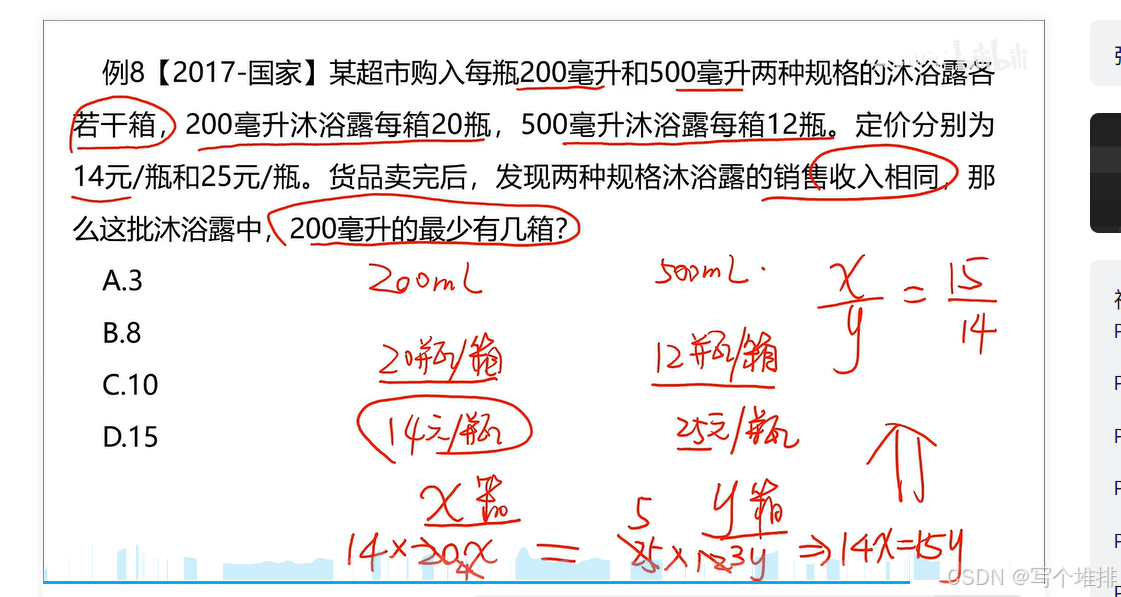 例8【2017-国家】某超市购入每瓶200毫升和500毫升两种规格的沐浴露各
若干箱，200毫升沐浴露每箱20瓶，500毫升沐浴露每箱12瓶。定价分别为
14元/瓶和25元/瓶。货品卖完后，发现两种规格沐浴露的销售收入相同，那
么这批沐浴露中，200毫升的最少有几箱？
A.3
B.8
C.10
D.15
200mL
500mL.
x/y = 15/14
20瓶/箱
12瓶/箱
14元/瓶
25元/瓶
x箱
y箱
5
14×20x = 25×12 3y ⇒ 14x=15y
4
CSDN @写个堆排